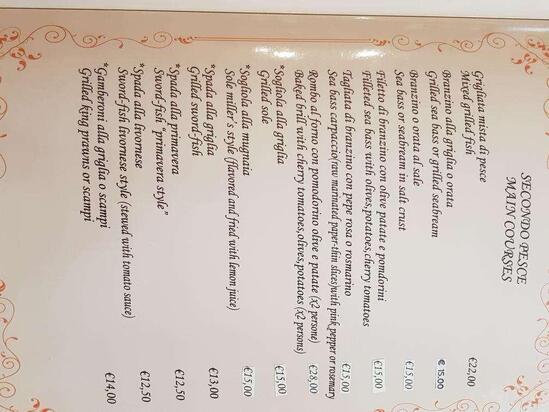 SECONDO PESCE
MAIN COURSES
Grigliata mista di pesce
Mixed grilled fish €22,00
Branzino alla griglia o orata
Grilled sea bass or grilled seabream € 15,00
Branzino o orata al sale
Sea bass or seabream in salt crust €15,00
Filetto di branzino con olive patate e pomdorini
Filleted sea bass with olives,potatoes,cherry tomatoes €15,00
Tagliata di branzino con pepe rosa o rosmarino
Sea bass carpaccio(raw marinated paper-thin slices)with pink pepper or rosemary €15,00
Rombo al forno con pomodorino olive e patate (x2 persone) €28,00
Baked brill with cherry tomatoes,olives,potatoes (x2 persons)
*Sogliola alla griglia
Grilled sole €15,00
*Sogliola alla mugnaia
Sole miller's style (flavored and fried with lemon juice) €15,00
*Spada alla griglia
Grilled sword-fish €13,00
*Spada alla primavera
Sword-fish "primavera style" €12,50
*Spada alla livornese
Sword-fish livornese style (stewed with tomato sauce) €12,50
*Gamberoni alla griglia o scampi
Grilled king prawns or scampi €14,00